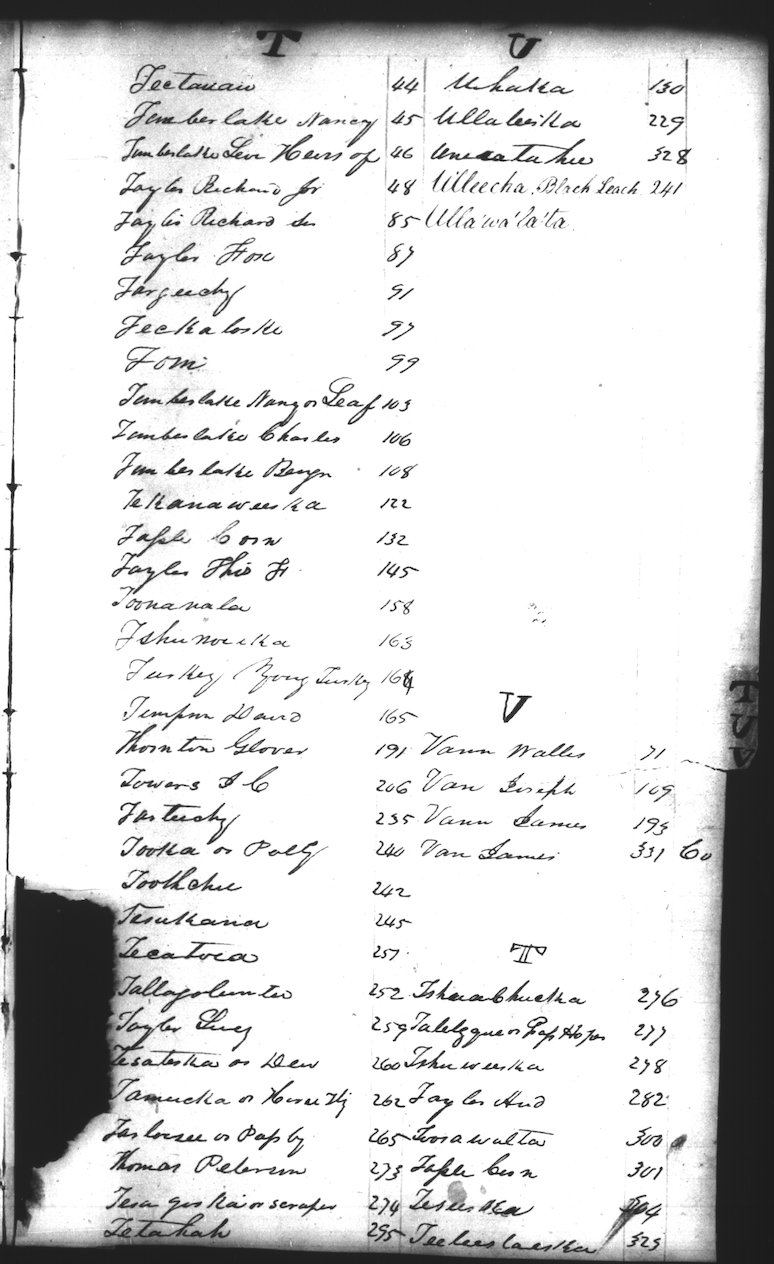 T
Tectanaw 44
Timberlake Nancy 45
Timberlake Levi Heirs of 46
Tayler Richard Jr 48
Tayler Richard Sr 85
Tayler Fox 87
Targuchy 91
Teckaloske 97
Tom 99
Timberlake Nancy or Leaf 103
Timberlake Charles 106
Timberlake Benjn 108
Tekanaweeska 122
Tassle Corn 132
Tayler 145
Toonanala 158
Tshuweeka 163
Turkey Young Turkey 164
Timpson David 165
Thornton Glover 191
Towers I C 206
Tastuchy 235
Tooka or Polly 240
Toothchee 242
Tesukana 245
Tecatoea 257
Tallagolunter 252
Tayler Lucy 259
Tesateska or Dew 260
Tamucka or Horse Fly 262
Taslosee or Pass by 265
Thomas Peterson 273
Tesa geskia or scraper 274
Tetahah 295
U
Uhaka 130
Ullaleeska 229
Unecatahee 328
Ulleecha Black Leach 241
Ulla'wa'la'ta
V
Vann Walter 71
Van Joseph 109
Vann James 193
Van James 331 Co
T
276
277
Tshuweeska 278
Tayler And 282
Toosawalta 300
Tassle Corn 301
Teseeskea 304
Teeleeslaeska 323